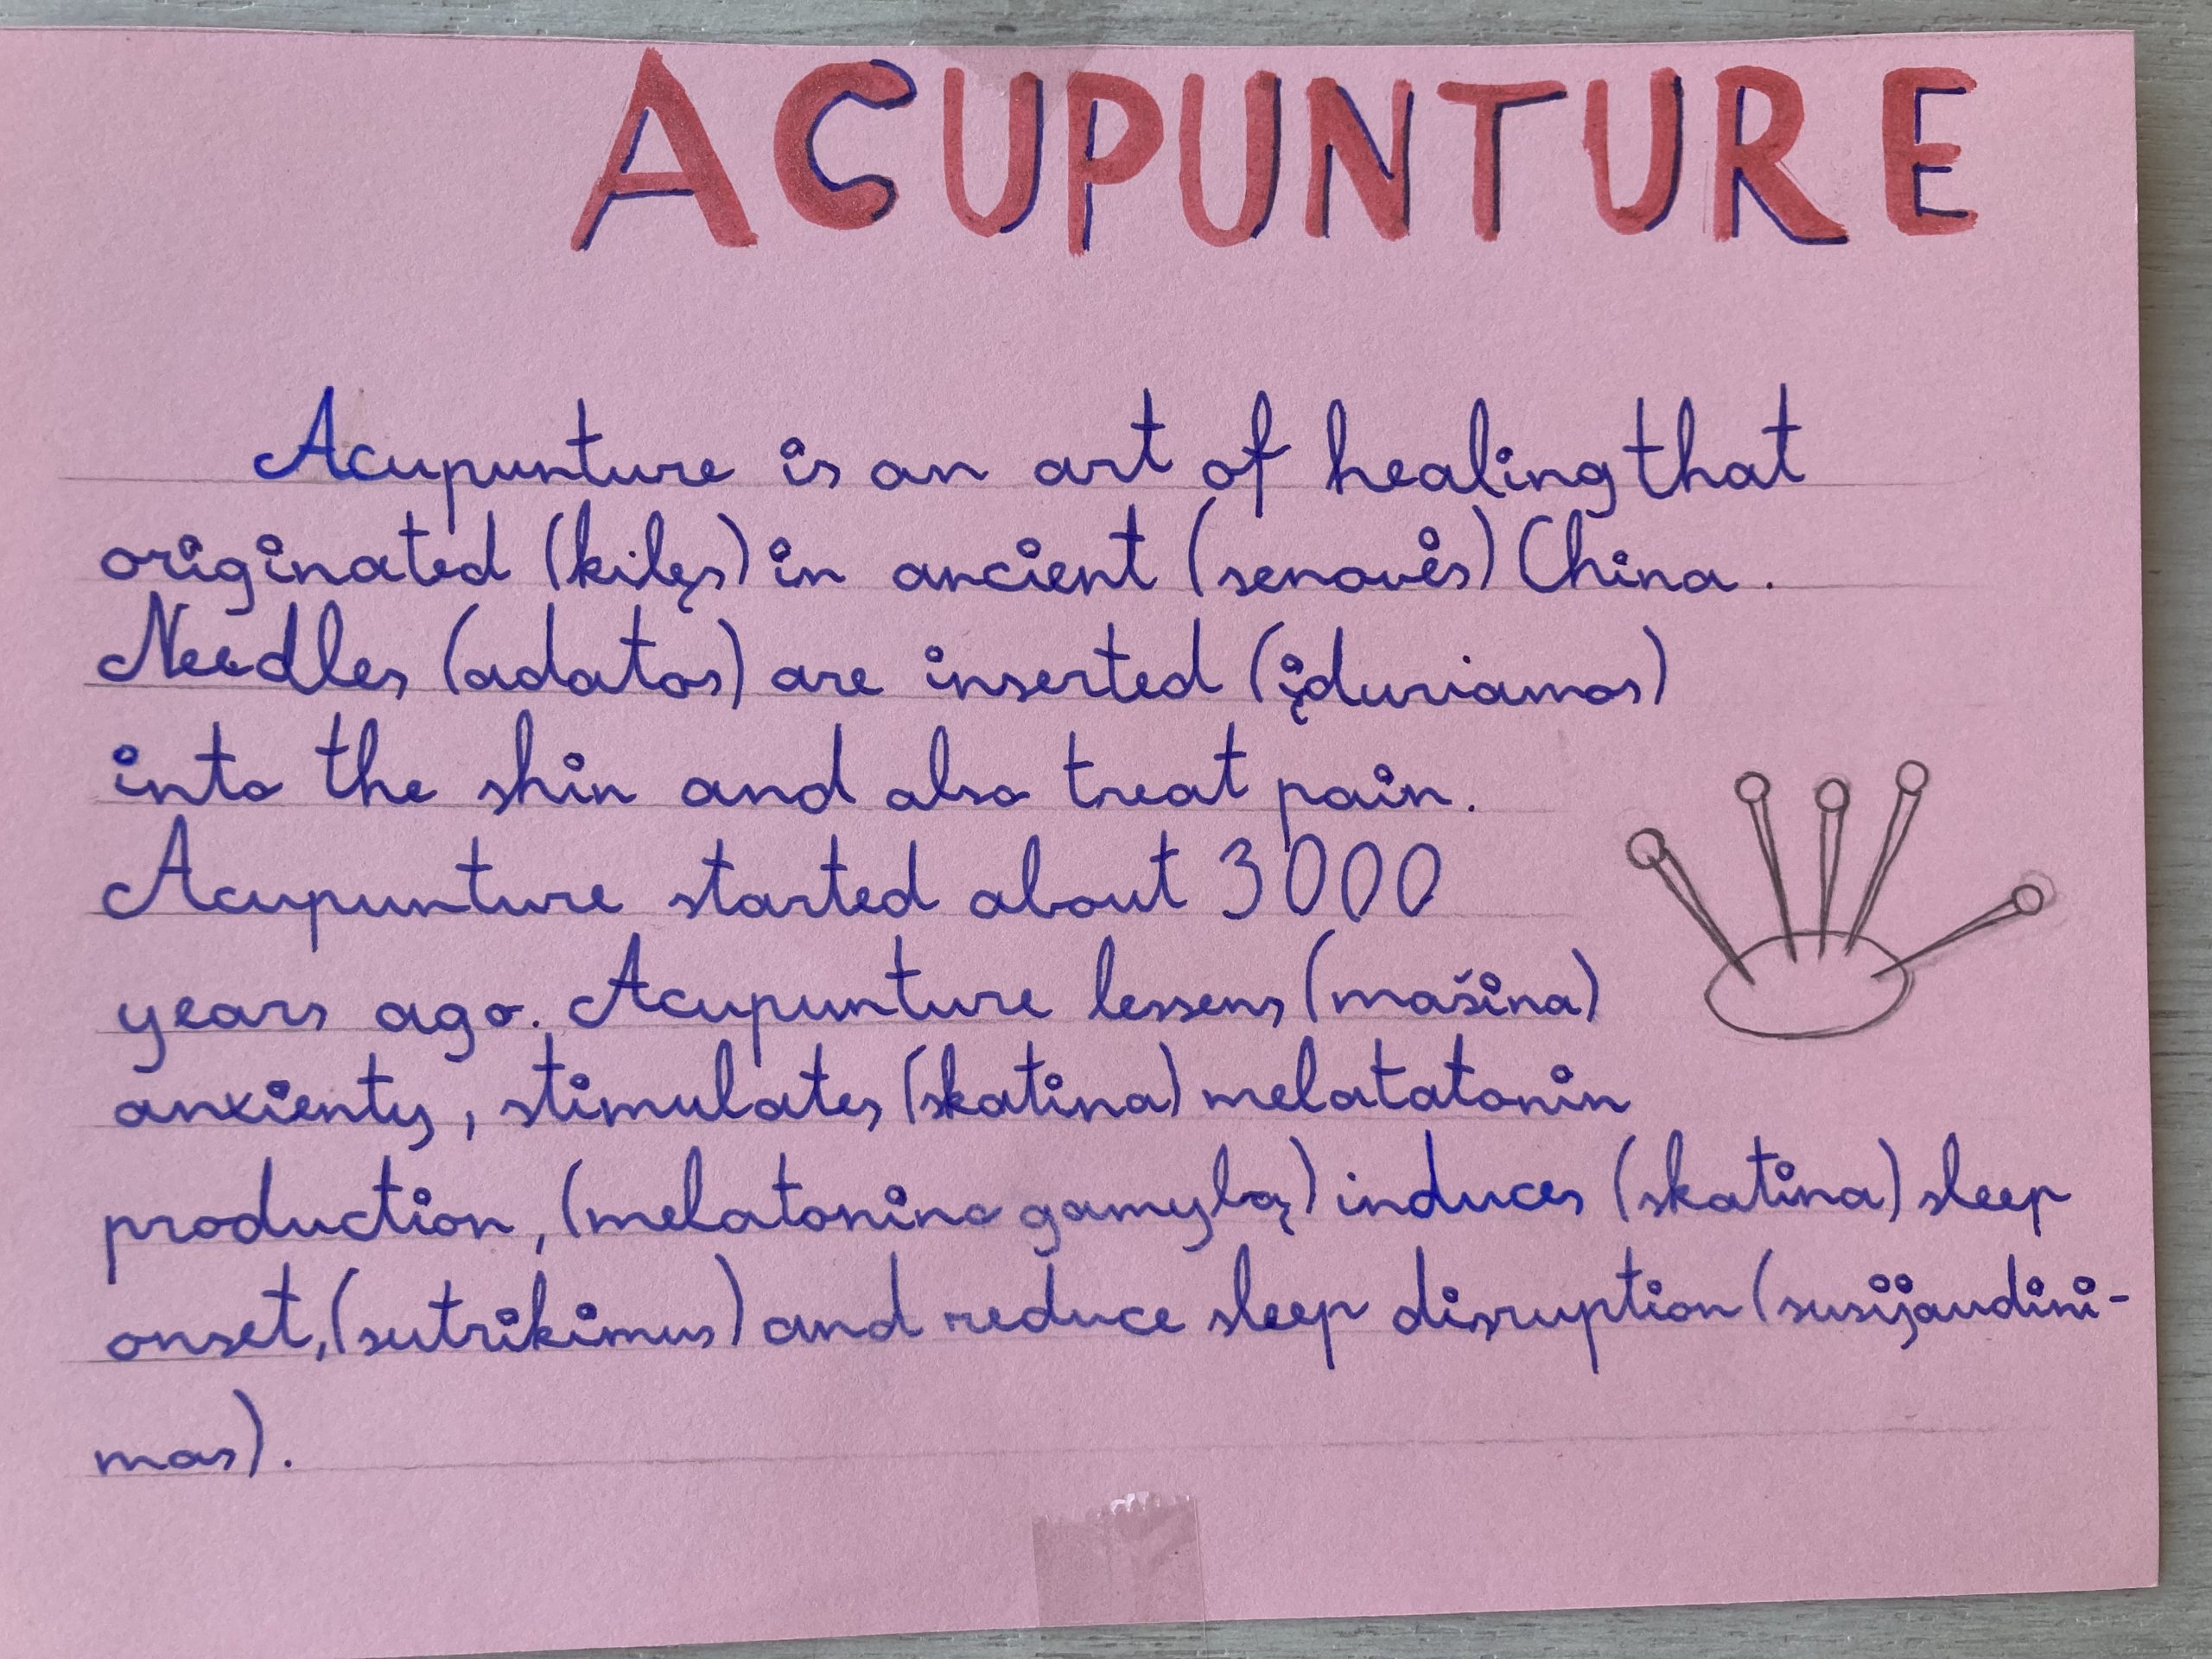 ACUPUNTURE
Acupunture is an art of healing that
originated (kilęs) in ancient (senovės) China.
Needles (adatos) are inserted (įduriamos)
into the skin and also treat pain.
Acupunture started about 3000
years ago. Acupunture lessens (mašina)
anxienty, stimulates (skatina) melatatonin
production, (melatonino gamybą) induces (skatina) sleep
onset, (sutrikimus) and reduce sleep disruption (susijaudini-
mas).